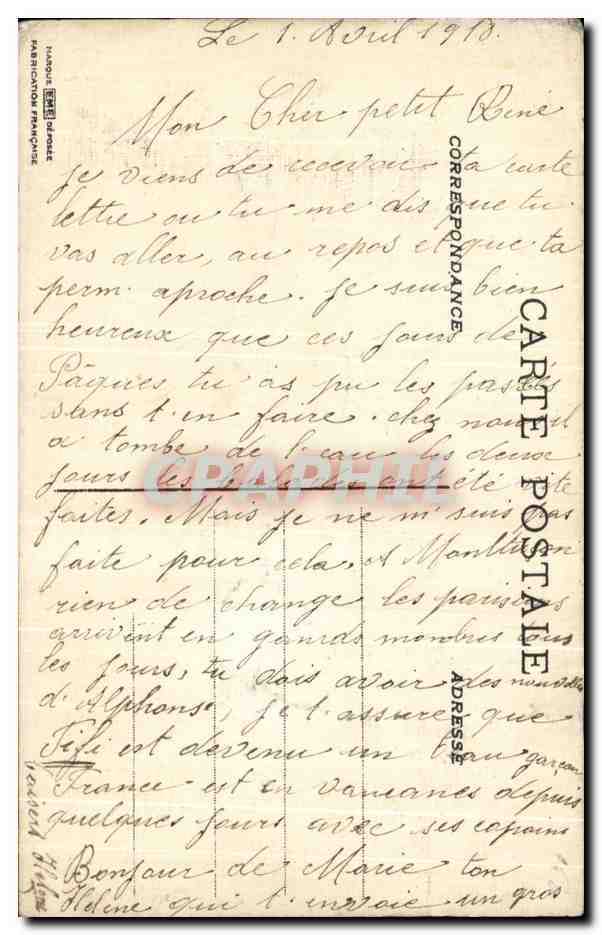 Le 1. Avril 1918.
Mon Cher petit Réné
Je viens de recevoir ta carte
lettre ou tu me dis que tu
vas aller, au repos et que ta
perm. aproche. Je suis bien
heureux que ces jours de
Pâques tu as pu les passés
sans t'en faire. chez nous il
a tombe de l'eau les deux
jours les ont été vite
faites. Mais je ne m'suis pas
faite pour cela. A Montluçon
rien de change les parisiens
arrivent en gaurds monbres tous
les jours, tu dois avoir des nouvelles
d'Alphonse, je t'assure que
Fifi est devenu un beau garçon
France est en vancanes depuis
quelques jours avec ses copains
Bonjour de Marie ton
Hélène qui t'envoie un gros
baisers Hélène
CARTE POSTALE
CORRESPONDANCE
ADRESSE
MARQUE EME DÉPOSÉE
FABRICATION FRANÇAISE
CPAPHIL